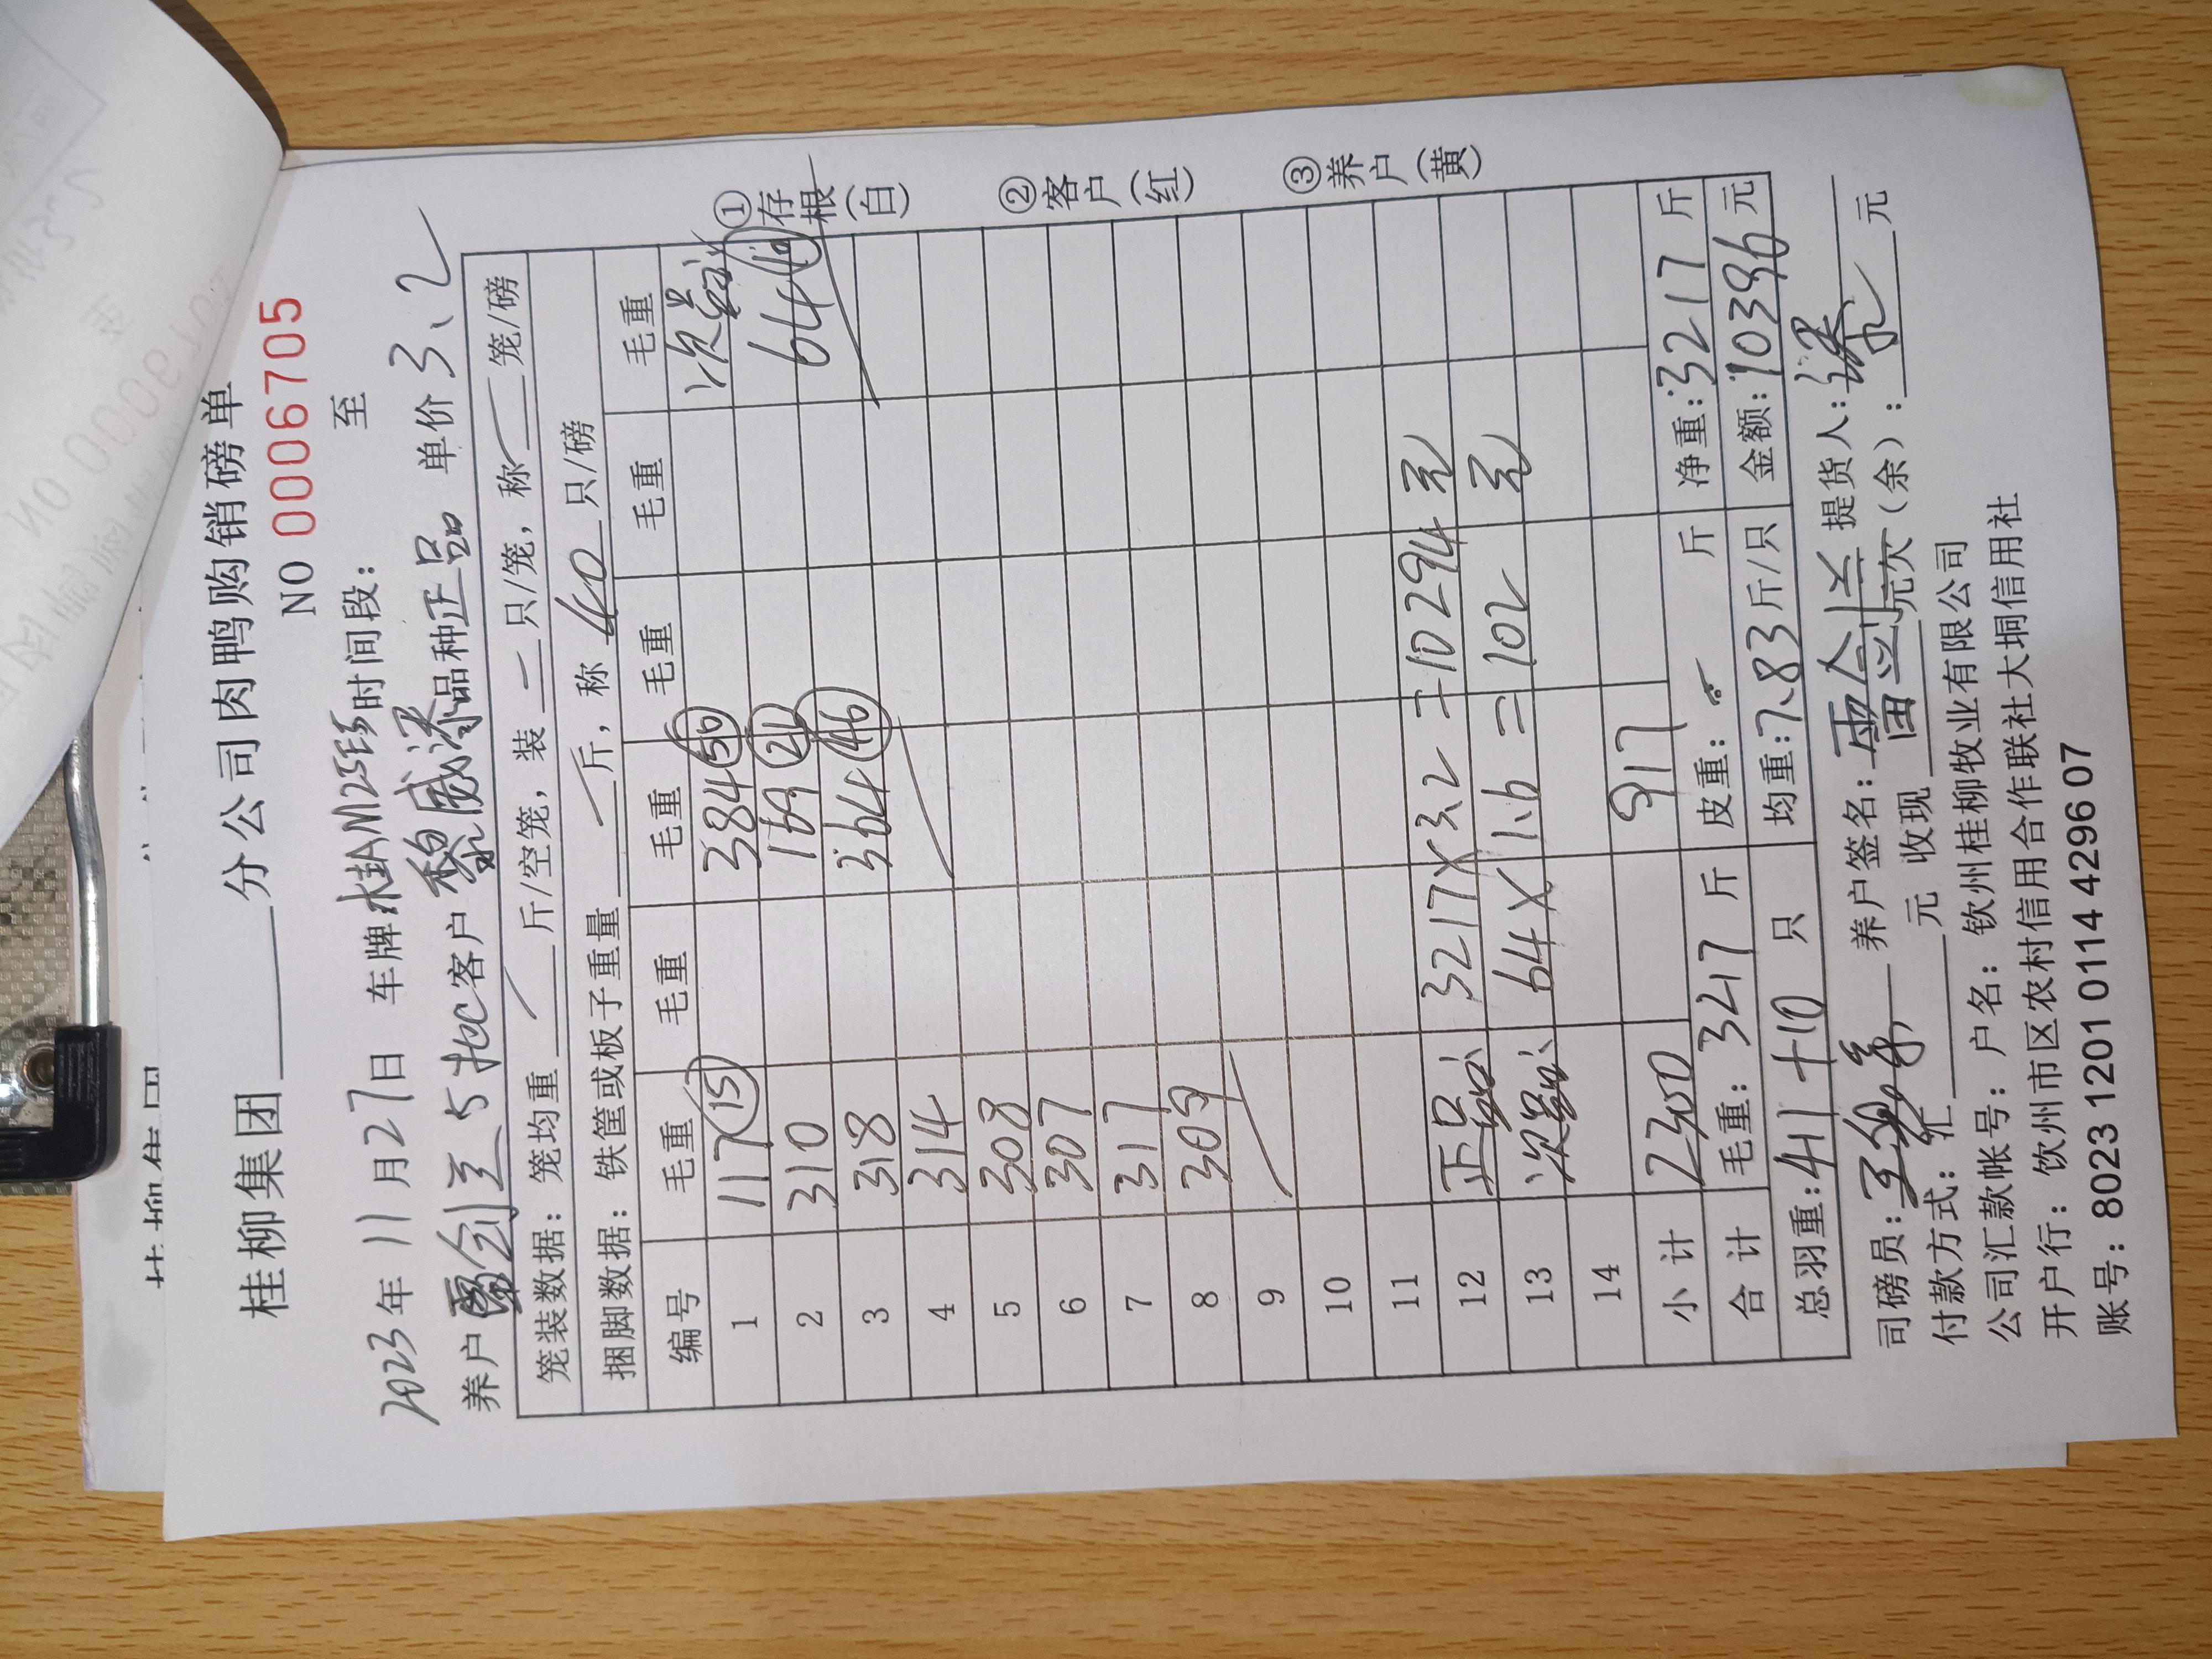 桂柳集团 分公司肉鸭购销磅单
NO 0006705
2023年11月27日 车牌桂AM25E5时间段： 至
养户雷剑兰5批客户黎威添品种正品 单价3.2
笼装数据：笼均重 斤/空笼，装 只/笼，称 笼/磅
捆脚数据：铁筐或板子重量 斤，称 40 只/磅
编号 毛重 毛重 毛重 毛重 毛重 毛重
1 117 (15) 384 (50) 次品:
2 310 169 (21) 64 (10)
3 318 364 (46)
4 314
5 308
6 307
7 317
8 309
9
10
11
12 正品: 3217×3.2=10294元
13 次品: 64×1.6=102元
14
小计 2300 917
合计 毛重：3217 斤 皮重： 斤 净重：3217 斤
总羽重：411+10 只 均重：7.83斤/只 金额：10396元
司磅员： 养户签名：雷剑兰 提货人：添
付款方式：汇 元 收现 元欠(余)： 元
公司汇款帐号：户名： 钦州桂柳牧业有限公司
开户行： 钦州市区农村信用合作联社大垌信用社
账号：8023 1201 0114 4296 07
①存根(白)
②客户(红)
③养户(黄)